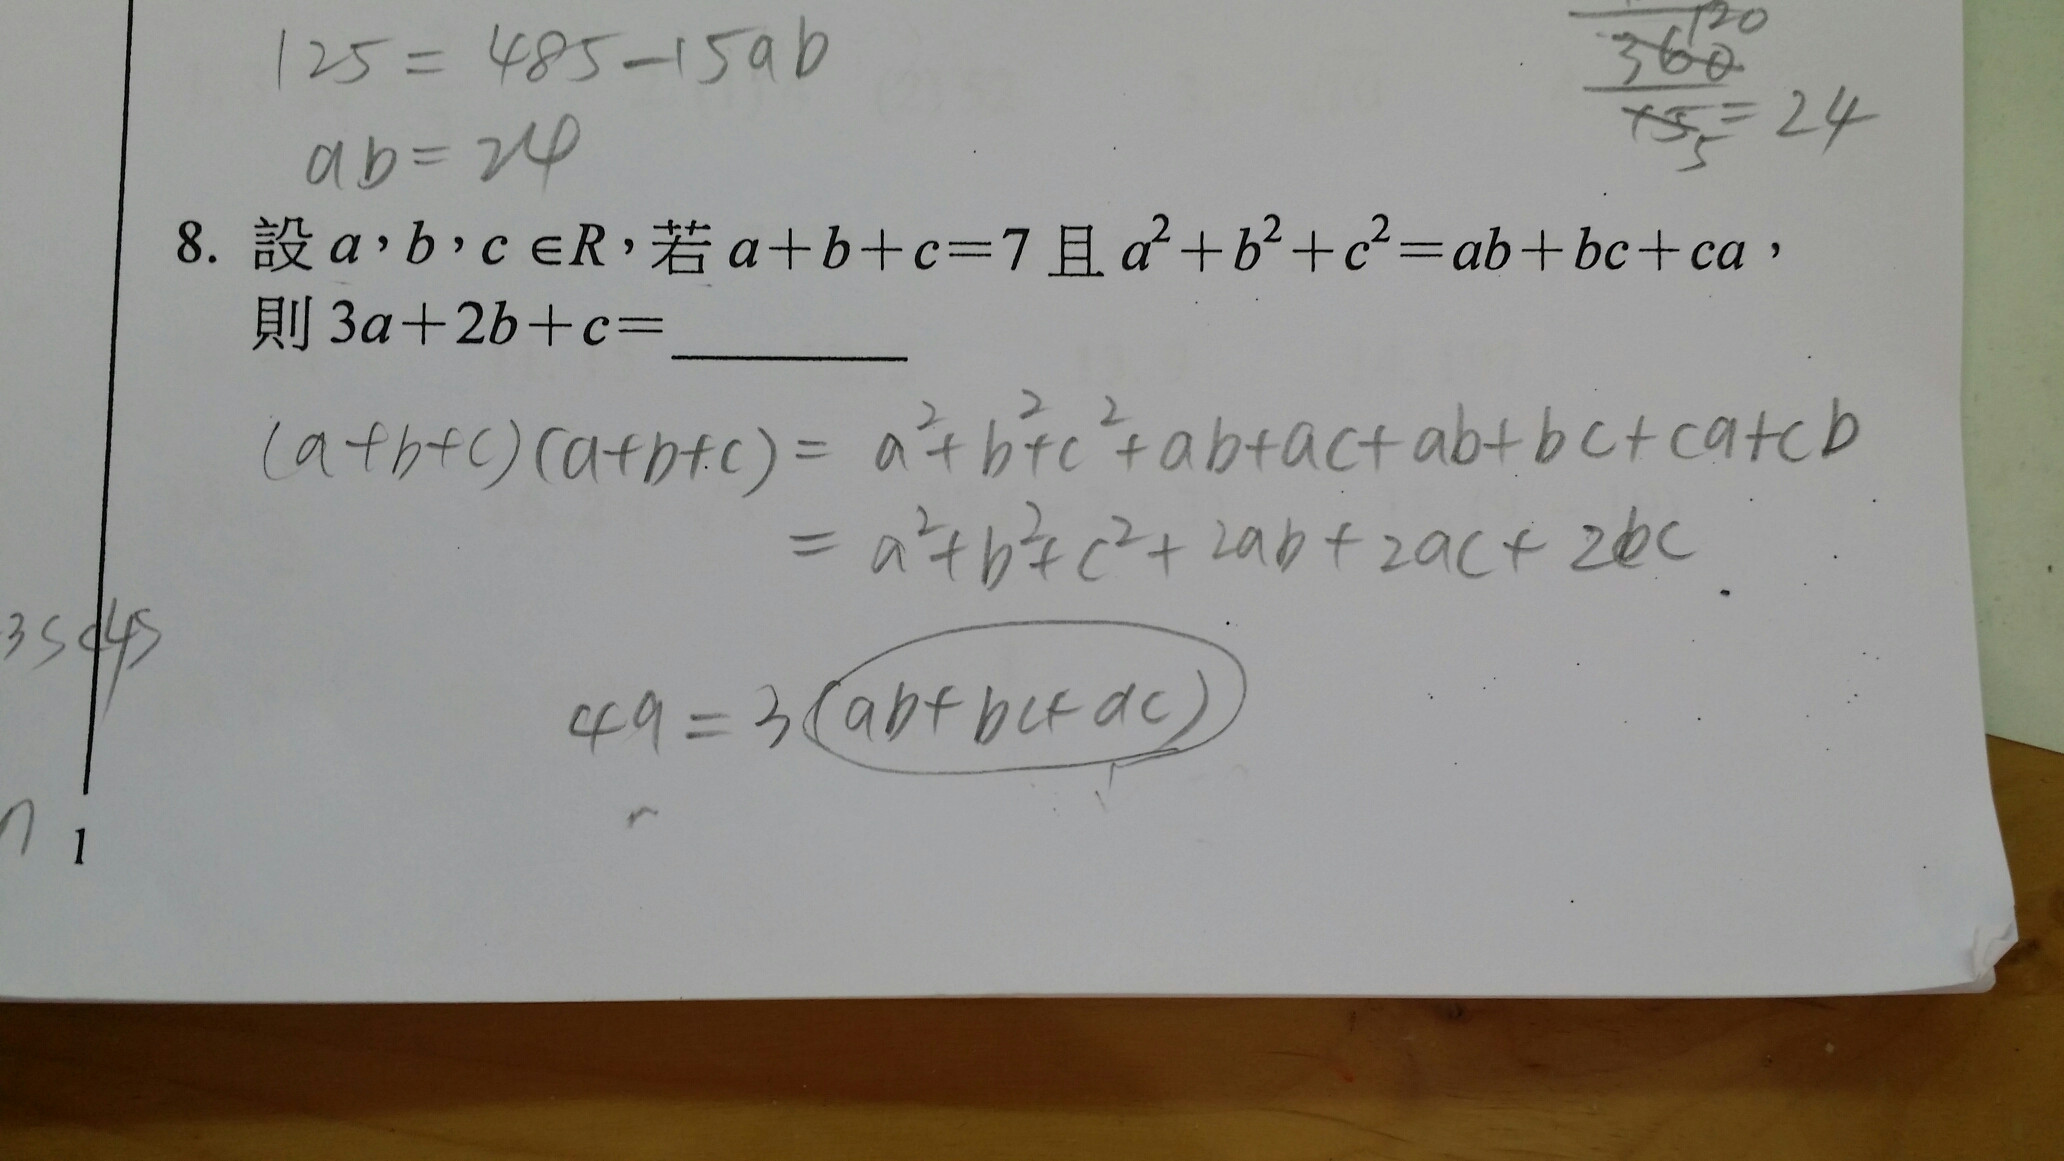 125 = 485-15ab
120
360
15 5 = 24
ab = 24
8. 設 a，b，c ∈R，若 a+b+c=7 且 a²+b²+c²=ab+bc+ca，
則 3a+2b+c=________
(a+b+c)(a+b+c) = a²+b²+c²+ab+ac+ab+bc+ca+cb
= a²+b²+c²+2ab+2ac+2bc
49 = 3(ab+bc+ac)
1